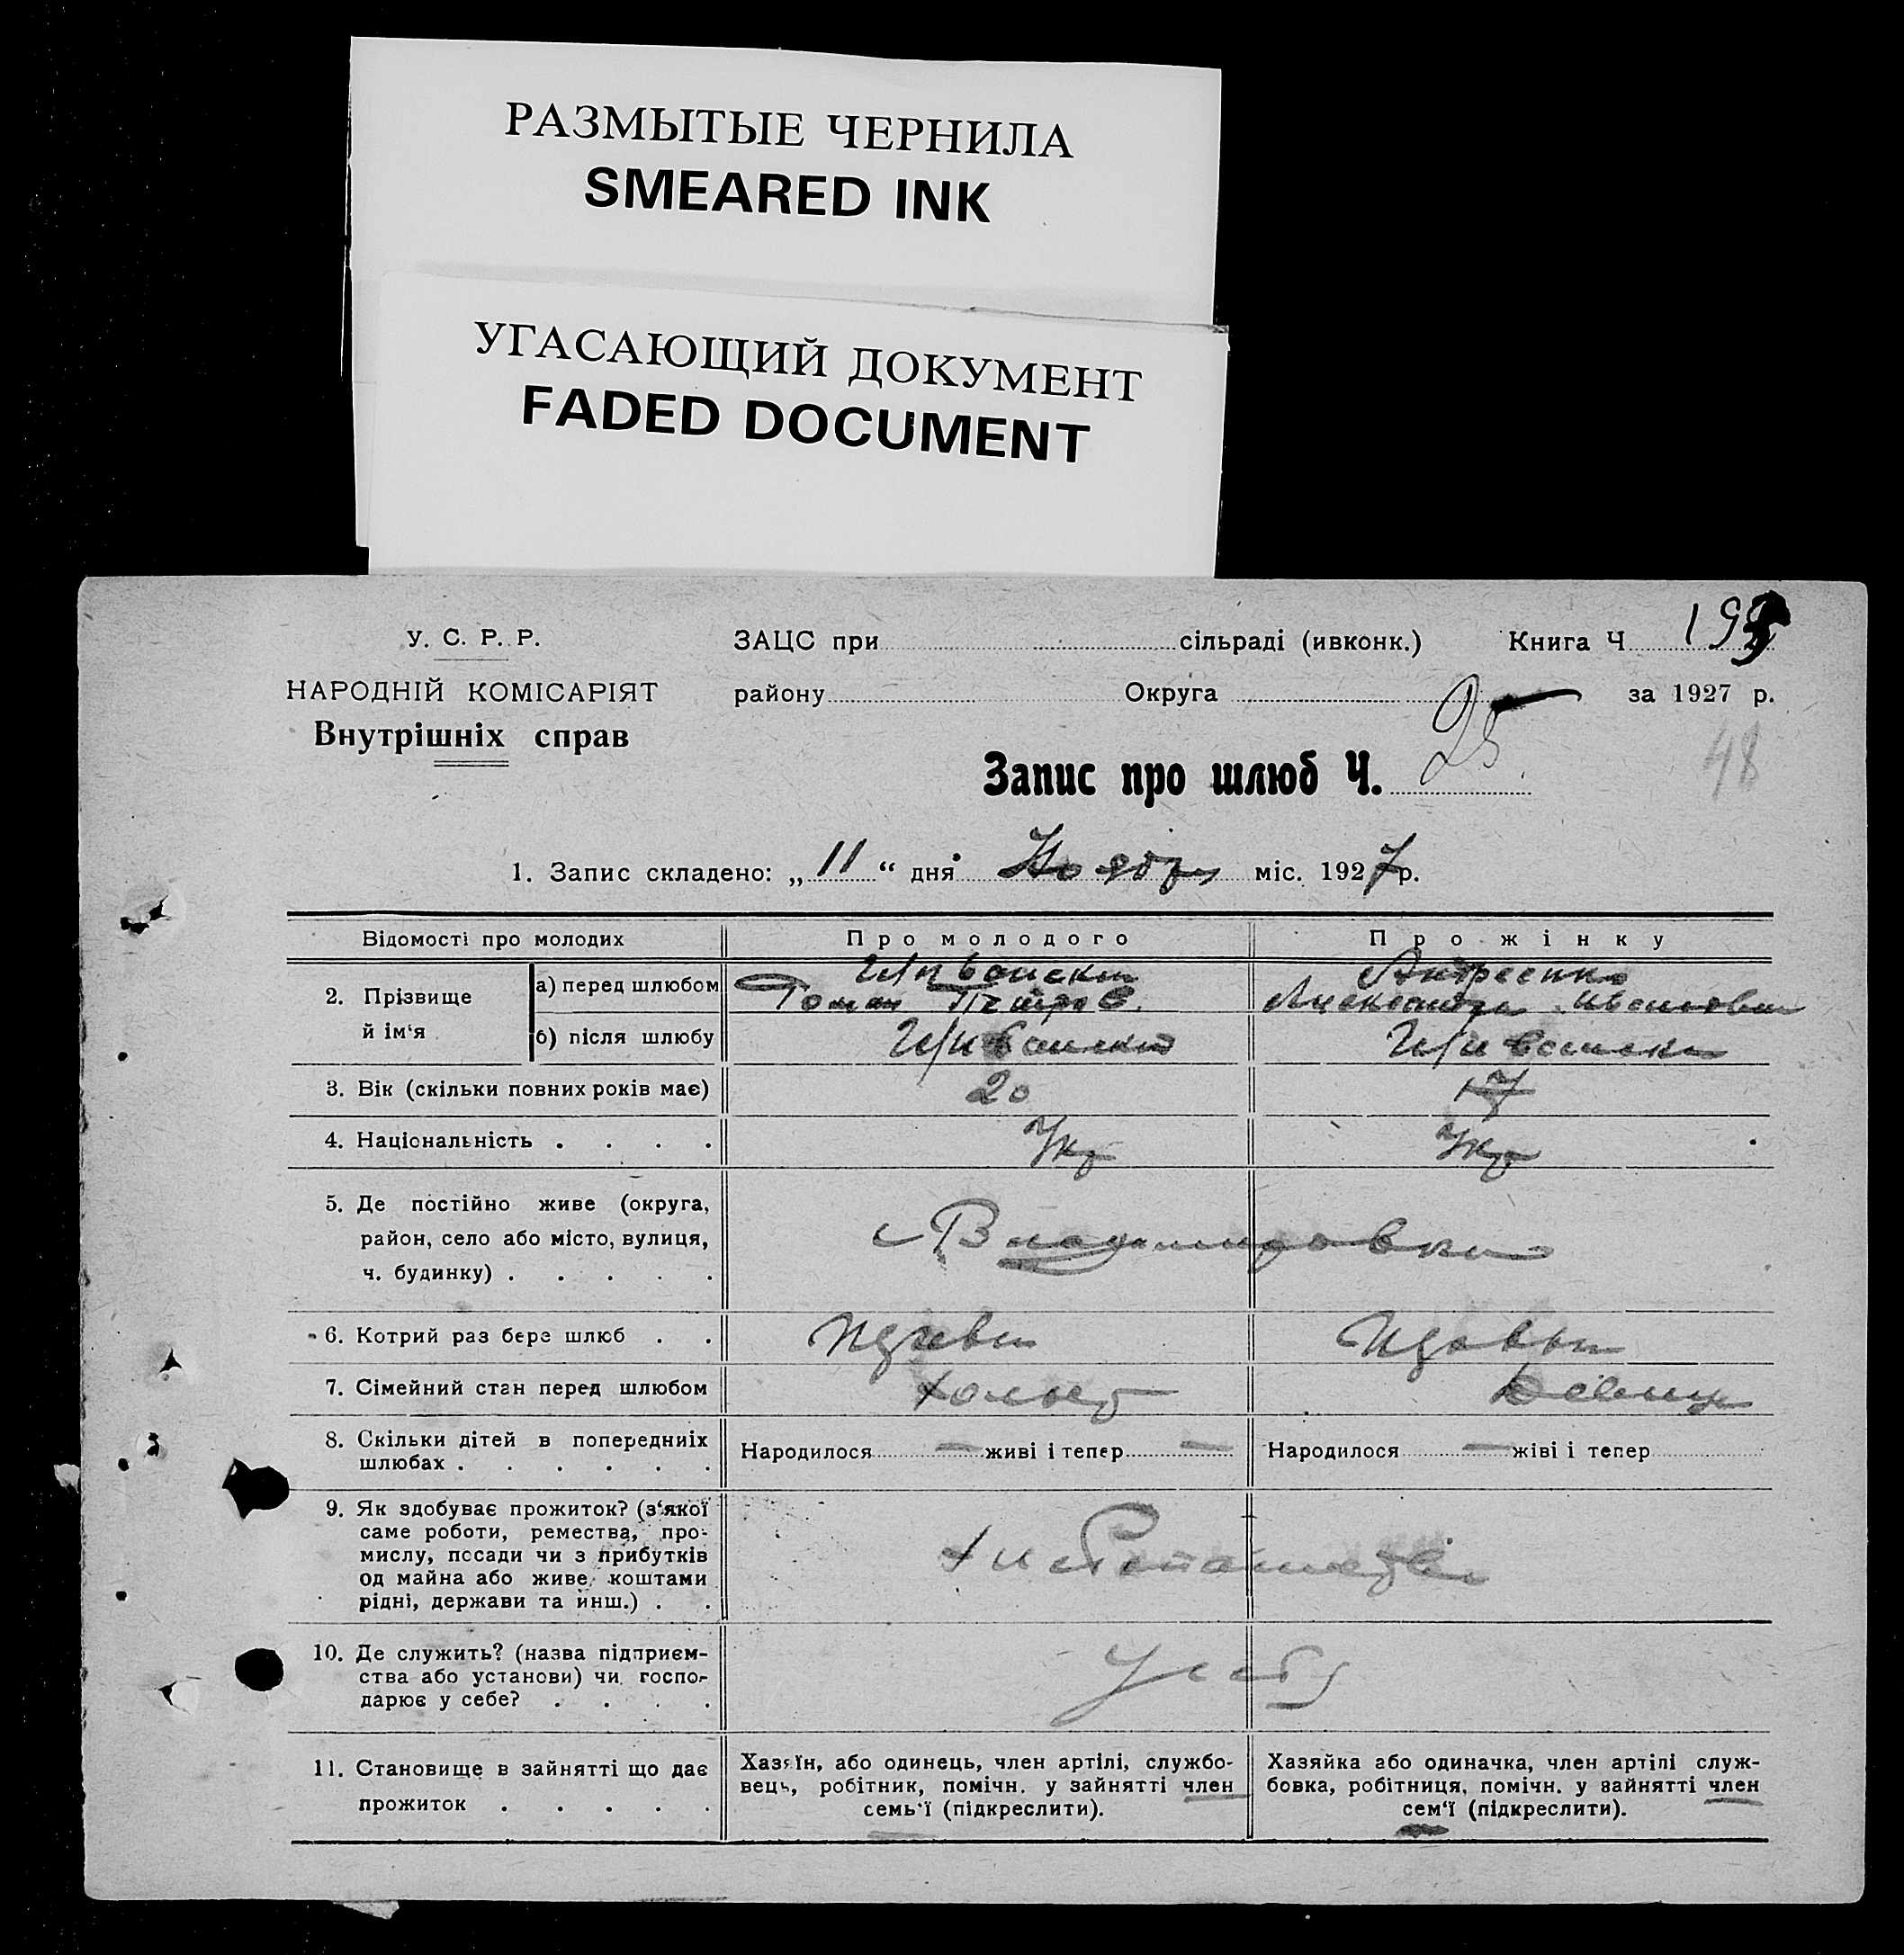 РАЗМЫТЫЕ ЧЕРНИЛА
SMEARED INK
УГАСАЮЩИЙ ДОКУМЕНТ
FADED DOCUMENT
У. С. Р. Р.
НАРОДНІЙ КОМІСАРІЯТ
Внутрішніх справ
ЗАЦС при сільраді (ивконк.) Книга Ч
району Округа за 1927 р.
48
Запис про шлюб Ч. 25
1. Запис складено: „ 11 “ дня Ноября міс. 1927 р.
Відомості про молодих Про молодого Про жінку
2. Прізвище й ім‘я
а) перед шлюбом
Роман Петров. Андреенко Александра Ивановна
б) після шлюбу
3. Вік (скільки повних років має) 20 17
4. Національність . . . . Укр Укр
5. Де постійно живе (округа,
район, село або місто, вулиця,
ч. будинку) . . . . .
с Владимировка
6. Котрий раз бере шлюб . . Первый Первый
7. Сімейний стан перед шлюбом Холост Девица
8. Скільки дітей в попередниіх
шлюбах . . . . . .
Народилося — живі і тепер — Народилося — жіві і тепер
9. Як здобуває прожиток? (з‘якої
саме роботи, ремества, про-
мислу, посади чи з прибутків
од майна або живе коштами
рідні, держави та йнш.) . .
10. Де служить? (назва підприєм-
ства або установи) чи госпо-
дарює у себе? . . . .
У себя
11. Становище в зайнятті що дає
прожиток . . . . .
Хазяїн, або одинець, член артілі, службо-
вець, робітник, помічн. у зайнятті член
семь‘ї (підкреслити).
Хазяйка або одиначка, член артілі служ-
бовка, робітниця, помічн. у зайнятті член
сем‘ї (підкреслити).